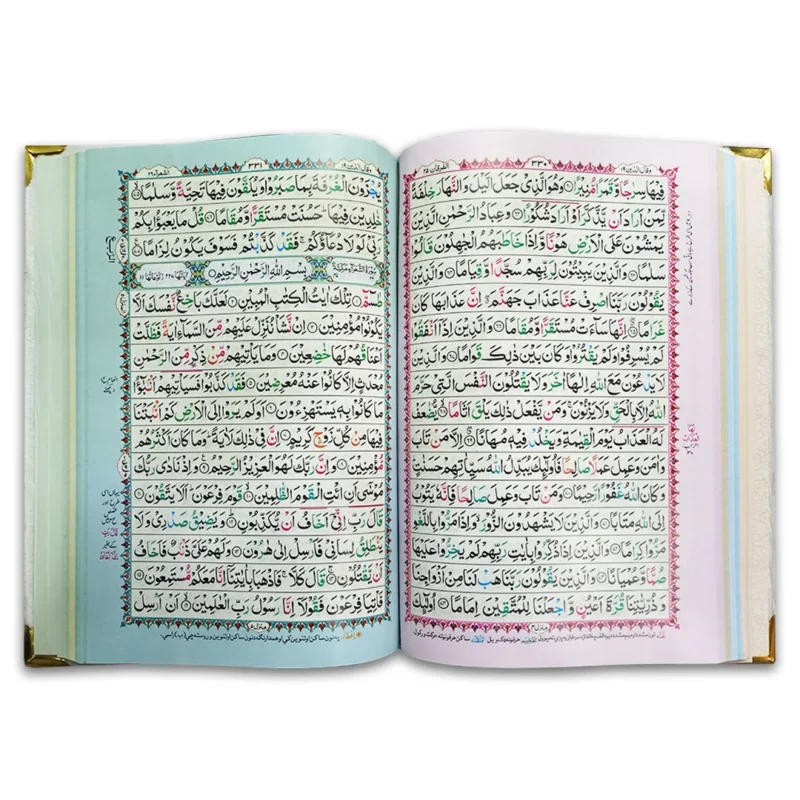 وقال الذين ١٩
٣٣٠
الفرقان ٢٥
فِيْهَا سِرٰجًا وَّقَمَرًا مُّنِيْرًا ۝ وَهُوَ الَّذِيْ جَعَلَ الَّيْلَ وَالنَّهَارَ خِلْفَةً
لِّمَنْ اَرَادَ اَنْ يَّذَّكَّرَ اَوْ اَرَادَ شُكُوْرًا ۝ وَعِبَادُ الرَّحْمٰنِ الَّذِيْنَ
يَمْشُوْنَ عَلَى الْاَرْضِ هَوْنًا وَّاِذَا خَاطَبَهُمُ الْجٰهِلُوْنَ قَالُوْا
سَلٰمًا ۝ وَالَّذِيْنَ يَبِيْتُوْنَ لِرَبِّهِمْ سُجَّدًا وَّقِيَامًا ۝ وَالَّذِيْنَ
يَقُوْلُوْنَ رَبَّنَا اصْرِفْ عَنَّا عَذَابَ جَهَنَّمَ اِنَّ عَذَابَهَا كَانَ
غَرَامًا ۝ اِنَّهَا سَآءَتْ مُسْتَقَرًّا وَّمُقَامًا ۝ وَالَّذِيْنَ اِذَآ اَنْفَقُوْا
لَمْ يُسْرِفُوْا وَلَمْ يَقْتُرُوْا وَكَانَ بَيْنَ ذٰلِكَ قَوَامًا ۝ وَالَّذِيْنَ
لَا يَدْعُوْنَ مَعَ اللّٰهِ اِلٰهًا اٰخَرَ وَلَا يَقْتُلُوْنَ النَّفْسَ الَّتِيْ حَرَّمَ
اللّٰهُ اِلَّا بِالْحَقِّ وَلَا يَزْنُوْنَ ۚ وَمَنْ يَّفْعَلْ ذٰلِكَ يَلْقَ اَثَامًا ۝ يُّضٰعَفْ
لَهُ الْعَذَابُ يَوْمَ الْقِيٰمَةِ وَيَخْلُدْ فِيْهٖ مُهَانًا ۝ اِلَّا مَنْ تَابَ
وَاٰمَنَ وَعَمِلَ عَمَلًا صَالِحًا فَاُولٰٓئِكَ يُبَدِّلُ اللّٰهُ سَيِّاٰتِهِمْ حَسَنٰتٍ
وَكَانَ اللّٰهُ غَفُوْرًا رَّحِيْمًا ۝ وَمَنْ تَابَ وَعَمِلَ صَالِحًا فَاِنَّهٗ يَتُوْبُ
اِلَى اللّٰهِ مَتَابًا ۝ وَالَّذِيْنَ لَا يَشْهَدُوْنَ الزُّوْرَ وَاِذَا مَرُّوْا بِاللَّغْوِ
مَرُّوْا كِرَامًا ۝ وَالَّذِيْنَ اِذَا ذُكِّرُوْا بِاٰيٰتِ رَبِّهِمْ لَمْ يَخِرُّوْا عَلَيْهَا
صُمًّا وَّعُمْيَانًا ۝ وَالَّذِيْنَ يَقُوْلُوْنَ رَبَّنَا هَبْ لَنَا مِنْ اَزْوَاجِنَا
وَذُرِّيّٰتِنَا قُرَّةَ اَعْيُنٍ وَّاجْعَلْنَا لِلْمُتَّقِيْنَ اِمَامًا ۝ اُولٰٓئِكَ
منزل ٤
وقال الذين ١٩
٣٣١
الشعرآء ٢٦
يُجْزَوْنَ الْغُرْفَةَ بِمَا صَبَرُوْا وَيُلَقَّوْنَ فِيْهَا تَحِيَّةً وَّسَلٰمًا ۝
خٰلِدِيْنَ فِيْهَا ۚ حَسُنَتْ مُسْتَقَرًّا وَّمُقَامًا ۝ قُلْ مَا يَعْبَؤُا بِكُمْ
رَبِّيْ لَوْلَا دُعَآؤُكُمْ ۚ فَقَدْ كَذَّبْتُمْ فَسَوْفَ يَكُوْنُ لِزَامًا ۝
سُوْرَةُ الشُّعَرَآءِ مَكِّيَّةٌ بِسْمِ اللّٰهِ الرَّحْمٰنِ الرَّحِيْمِ اٰيَاتُهَا ٢٢٧ رُكُوْعَاتُهَا ١١
طٰسٓمّٓ ۝ تِلْكَ اٰيٰتُ الْكِتٰبِ الْمُبِيْنِ ۝ لَعَلَّكَ بَاخِعٌ نَّفْسَكَ اَلَّا
يَكُوْنُوْا مُؤْمِنِيْنَ ۝ اِنْ نَّشَاْ نُنَزِّلْ عَلَيْهِمْ مِّنَ السَّمَآءِ اٰيَةً فَظَلَّتْ
اَعْنَاقُهُمْ لَهَا خٰضِعِيْنَ ۝ وَمَا يَاْتِيْهِمْ مِّنْ ذِكْرٍ مِّنَ الرَّحْمٰنِ
مُحْدَثٍ اِلَّا كَانُوْا عَنْهُ مُعْرِضِيْنَ ۝ فَقَدْ كَذَّبُوْا فَسَيَاْتِيْهِمْ اَنْۢبٰٓؤُا
مَا كَانُوْا بِهٖ يَسْتَهْزِءُوْنَ ۝ اَوَلَمْ يَرَوْا اِلَى الْاَرْضِ كَمْ اَنْۢبَتْنَا
فِيْهَا مِنْ كُلِّ زَوْجٍ كَرِيْمٍ ۝ اِنَّ فِيْ ذٰلِكَ لَاٰيَةً ۭ وَمَا كَانَ اَكْثَرُهُمْ
مُّؤْمِنِيْنَ ۝ وَاِنَّ رَبَّكَ لَهُوَ الْعَزِيْزُ الرَّحِيْمُ ۝ وَاِذْ نَادٰى رَبُّكَ
مُوْسٰٓى اَنِ ائْتِ الْقَوْمَ الظّٰلِمِيْنَ ۝ قَوْمَ فِرْعَوْنَ ۭ اَلَا يَتَّقُوْنَ ۝
قَالَ رَبِّ اِنِّيْٓ اَخَافُ اَنْ يُّكَذِّبُوْنِ ۝ وَيَضِيْقُ صَدْرِيْ وَلَا
يَنْطَلِقُ لِسَانِيْ فَاَرْسِلْ اِلٰى هٰرُوْنَ ۝ وَلَهُمْ عَلَيَّ ذَنْۢبٌ فَاَخَافُ
اَنْ يَّقْتُلُوْنِ ۝ قَالَ كَلَّا ۚ فَاذْهَبَا بِاٰيٰتِنَآ اِنَّا مَعَكُمْ مُّسْتَمِعُوْنَ ۝
فَاْتِيَا فِرْعَوْنَ فَقُوْلَآ اِنَّا رَسُوْلُ رَبِّ الْعٰلَمِيْنَ ۝ اَنْ اَرْسِلْ
منزل ٥